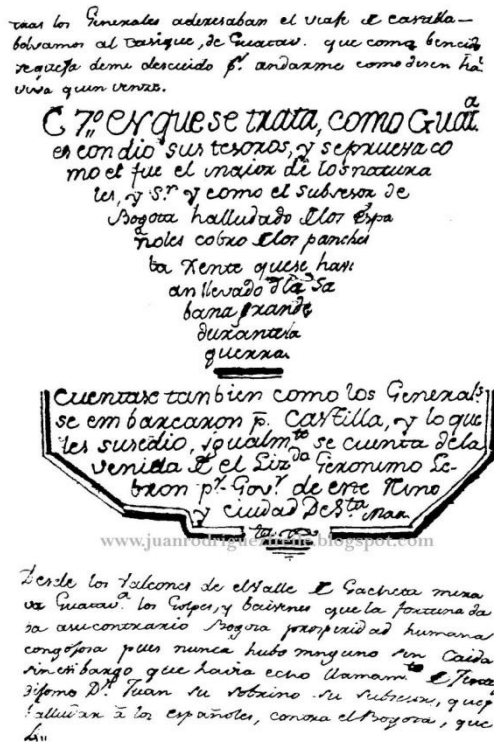 tras los Generales aderesaban el viaje de castilla –
bolvamos al Casique, de Guatav. que como bencido
se queja de mi descuido pr. andarme como disen ha
viva quien vense.
C 7.º eN que se trata, como Guat.a
escondio sus tesoros, y se prueva co
mo el fue el maior de los natura
les, y S.r y como el subsesor de
Bogota halludado de los Espa
ñoles cobro de los panches
la Xente que se havi
an llevado de la Sa
bana grande
durante la
guerra.
Cuentase tanbien como los Generals.
se embarcaron p.a CaSTilla, y lo que
les susedio, igualm.te se cuenta de la
venida de el Liz.do Geronimo Le-
bron p.r Gov.r de este Reino
y ciudad De S.ta Mar
ta
www.juanrodriguezfreile.blogspot.com
Desde los valcones de el Valle de Gacheta mira
va Guatav.a los Golpes, y baivenes que la fortuna da
va a su contrario Bogota prosperidad humana
congojosa pues nunca hubo ninguno sin Caida
sin embargo que havia echo llamam.to
D.n Juan su sobrino su subsesor, que
halludar à los españoles, contra el Bogota, que